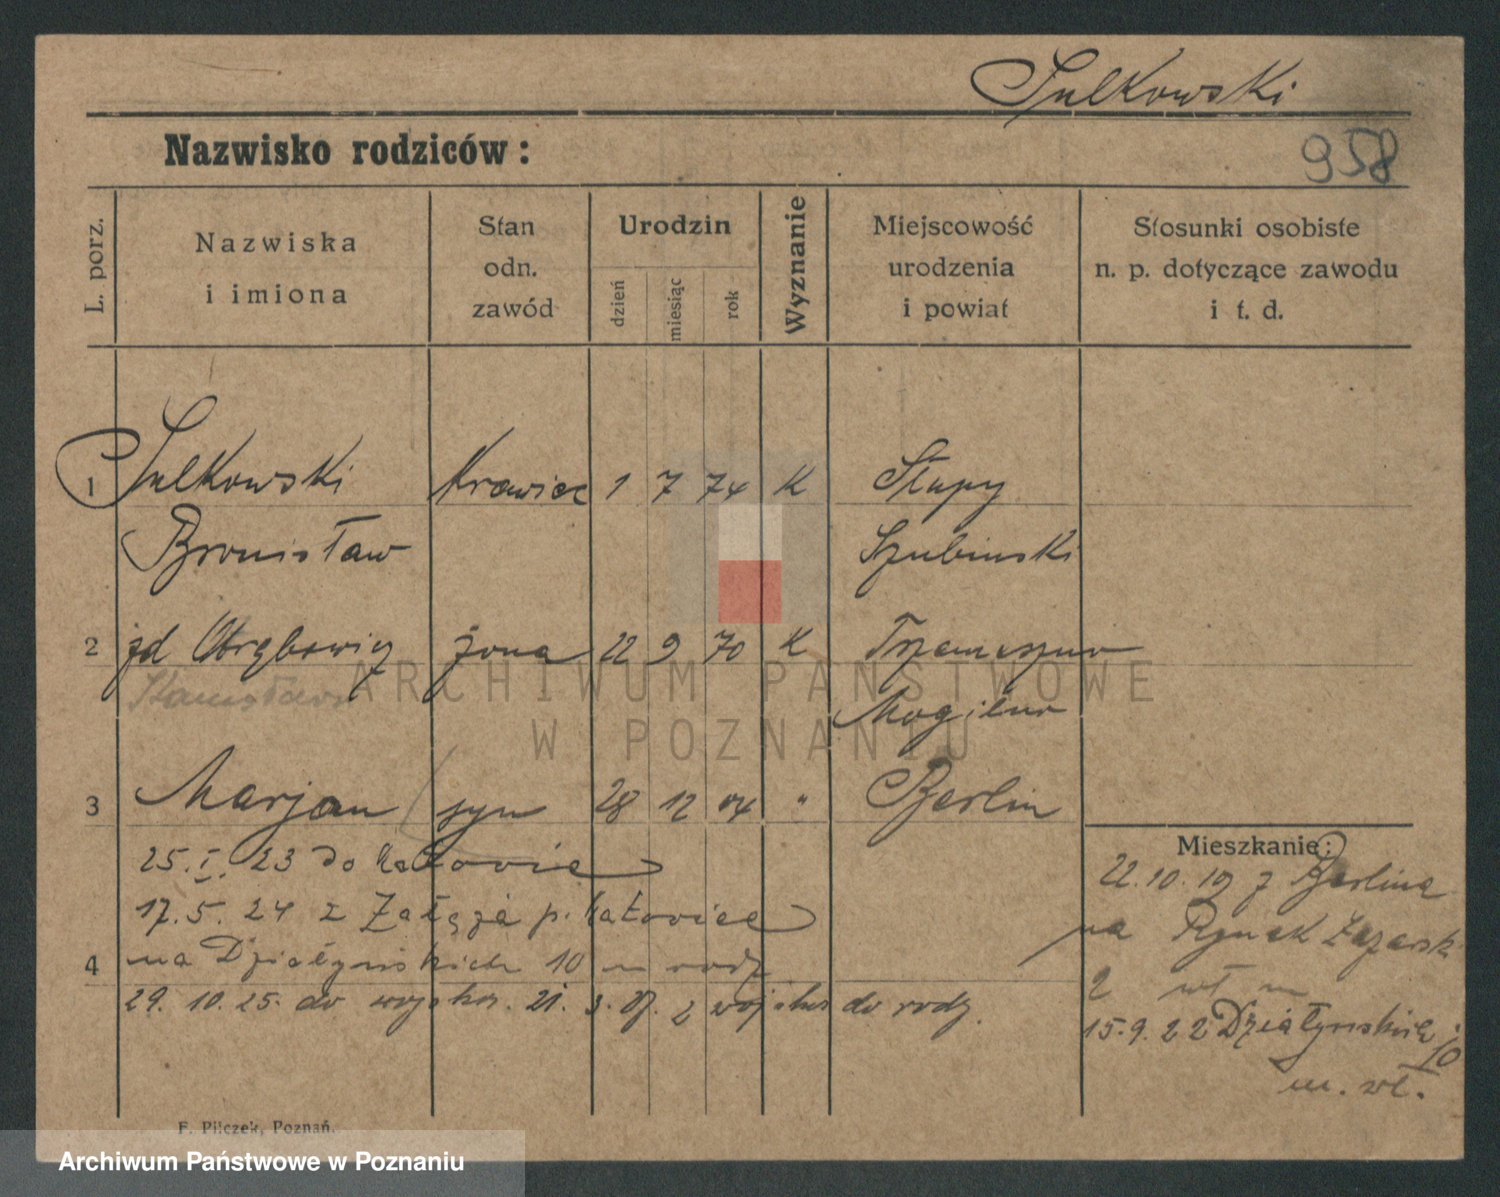 Sulkowski
Nazwisko rodziców:
958
L. porz.
Nazwiska
i imiona
Stan
odn.
zawód
Urodzin
dzień
miesiąc
rok
Wyznanie
Miejscowość
urodzenia
i powiat
Stosunki osobiste
n. p. dotyczące zawodu
i t. d.
1 Sulkowski Krawiec 1 7 74 K Słupy
Bronisław Szubinski
2 żd Otrąbowicz żona 22 9 70 K Trzemeszno
Stanisława Mogilno
3 Marjan syn 28 12 04 " Berlin
25. I. 23 do Katowic
17.5.24 z Załęża p. Katowice
4 na Działyńskich 10 m rodz
29. 10. 25. do wojska. 21. 3. 27. z wojska do rodz.
Mieszkanie:
22.10.19 z Berlina
na Rynek Łazarsk.
2 wł m
15.9.22 Działyńskich 10
m. wł.
F. Pilczek, Poznań.
ARCHIWUM PAŃSTWOWE
W POZNANIU
Archiwum Państwowe w Poznaniu